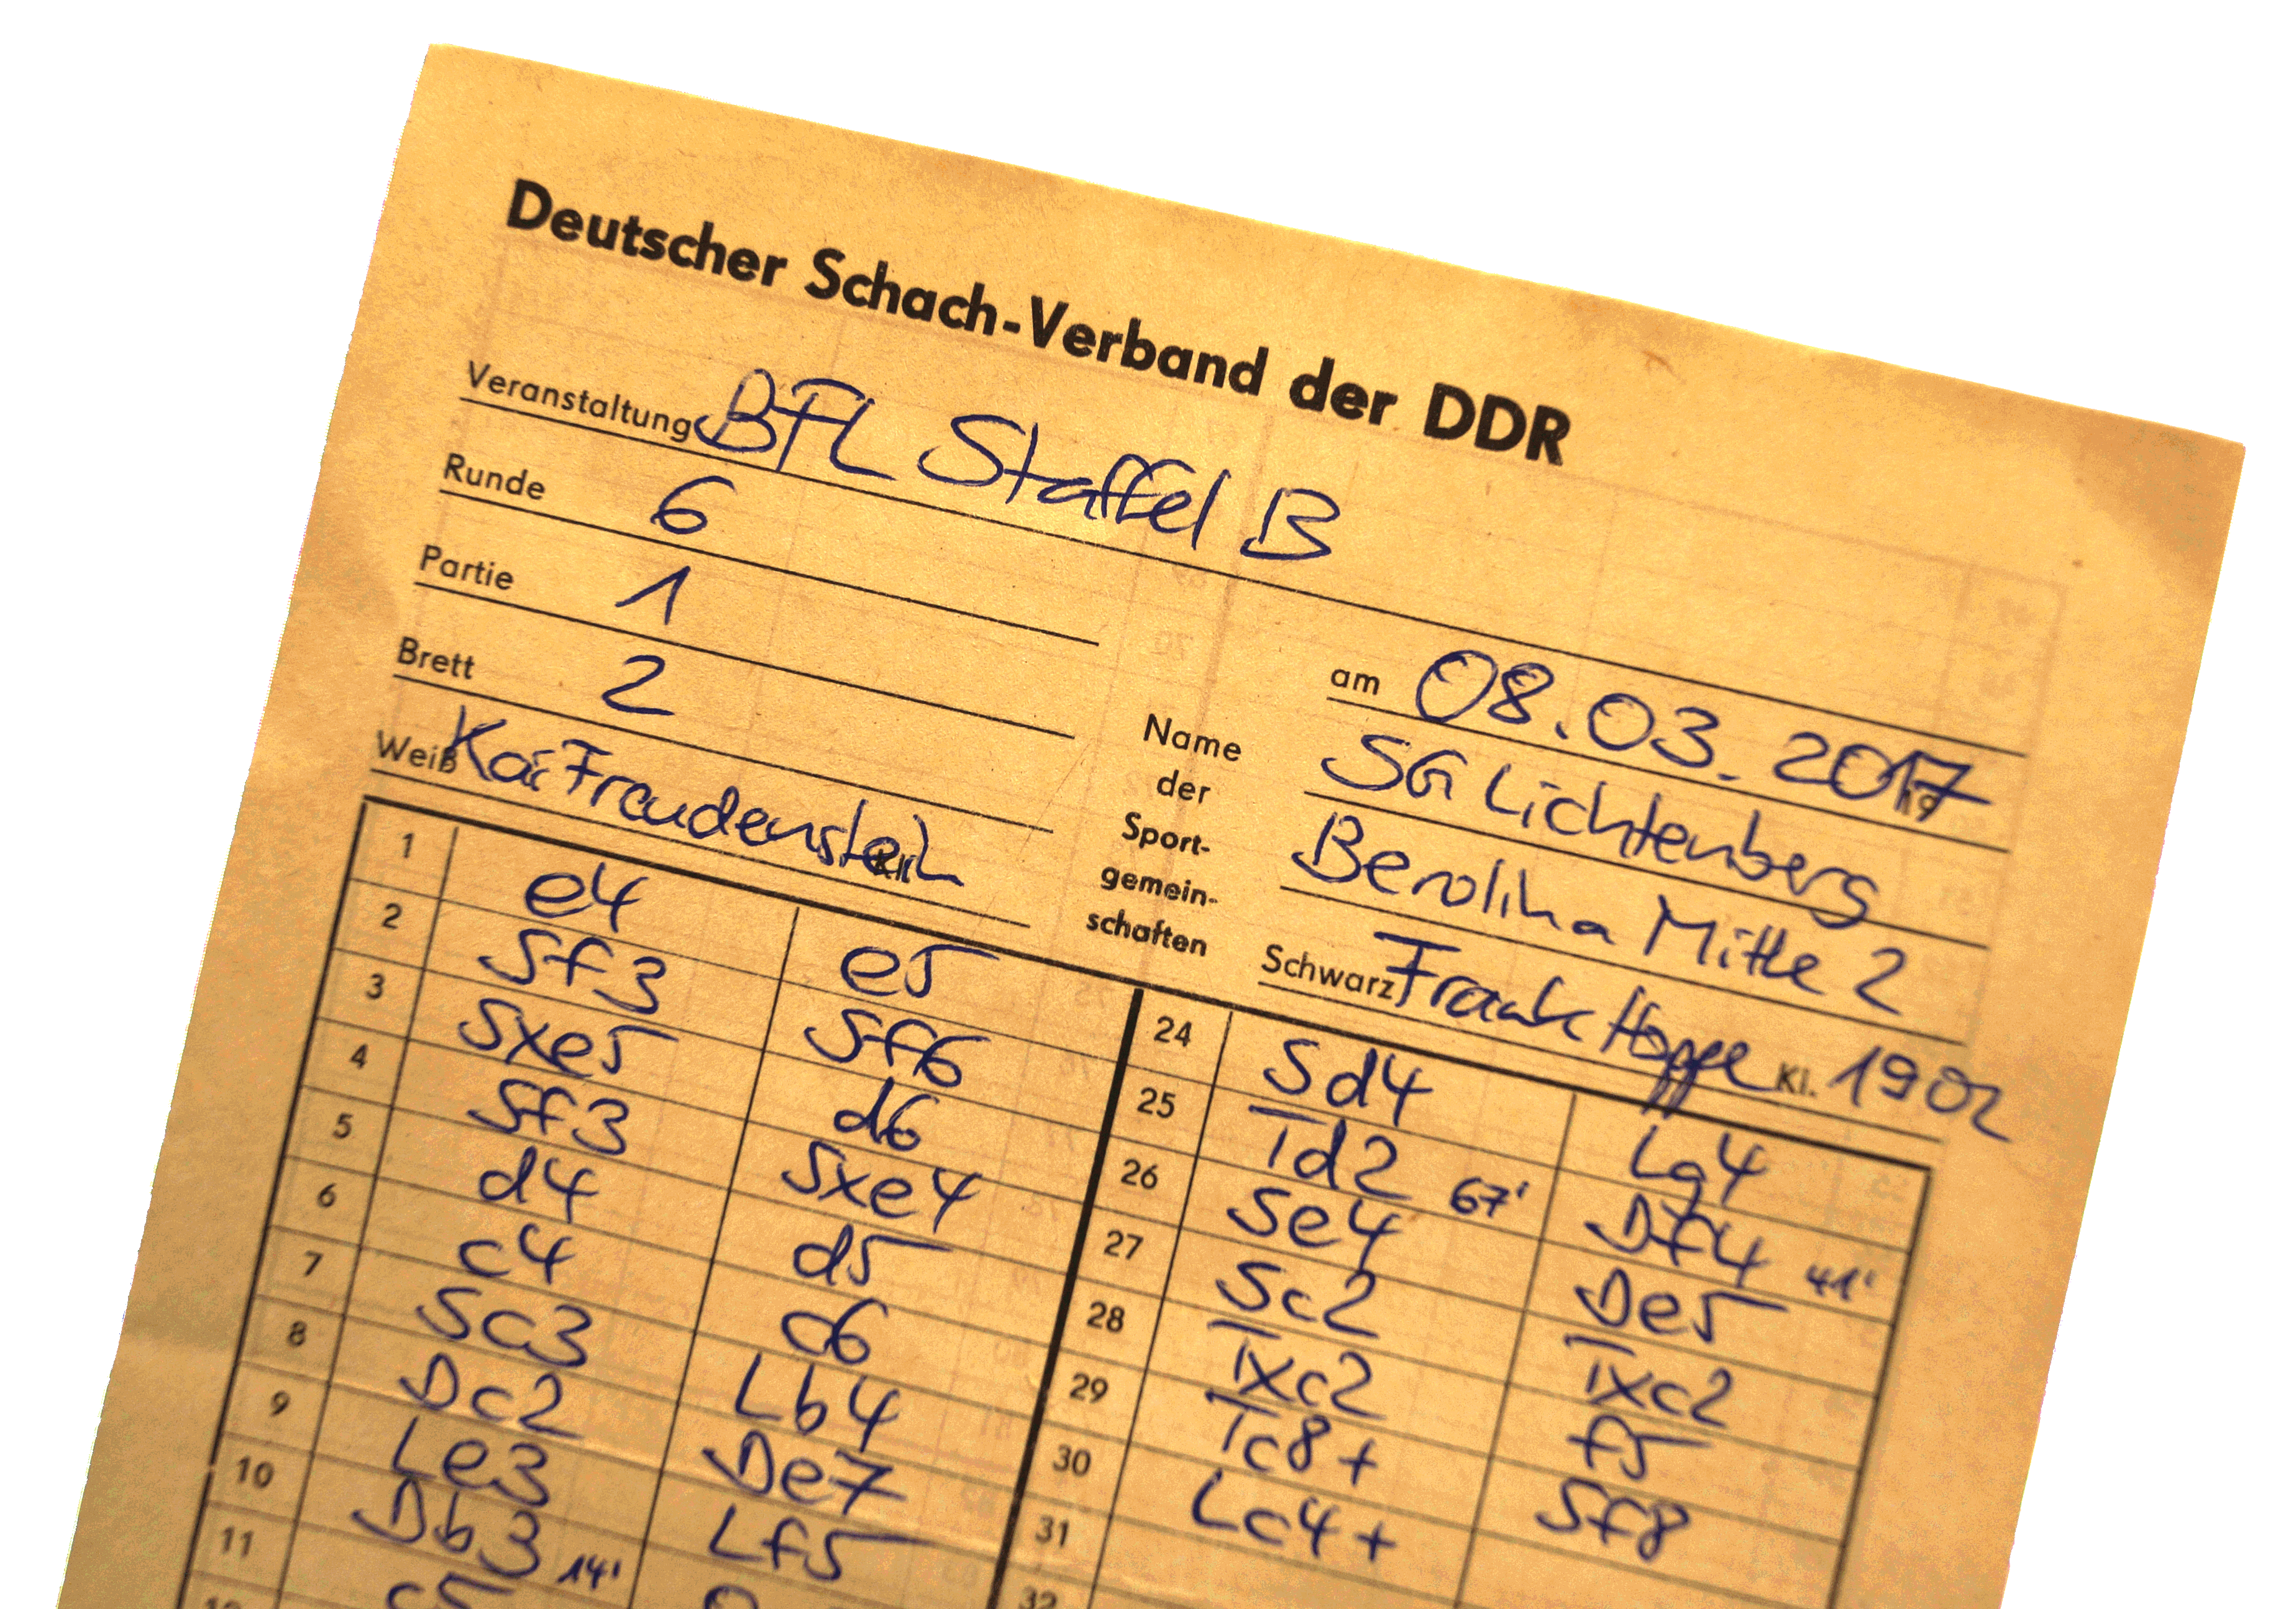 Deutscher Schach-Verband der DDR
Veranstaltung BFL Staffel B
Runde 6
am 08.03.2017 19
Partie 1
Brett 2
Weiß Kai Freudenstein Kl.
Name
der
Sport-
gemein-
schaften
SG Lichtenberg
Berolina Mitte 2
Schwarz Frank Hoppe Kl. 1902
1 e4 e5
2 Sf3 Sf6
3 Sxe5 d6
4 Sf3 Sxe4
5 d4 d5
6 c4 c6
7 Sc3 Lb4
8 Dc2 De7
9 Le3 Lf5
10 Db3 14'
11 c5
24 Sd4 Lg4
25 Td2 67' Df4 41'
26 Se4 De5
27 Sc2 Txc2
28 Txc2 f5
29 Tc8+ Sf8
30 Lc4+
31
32